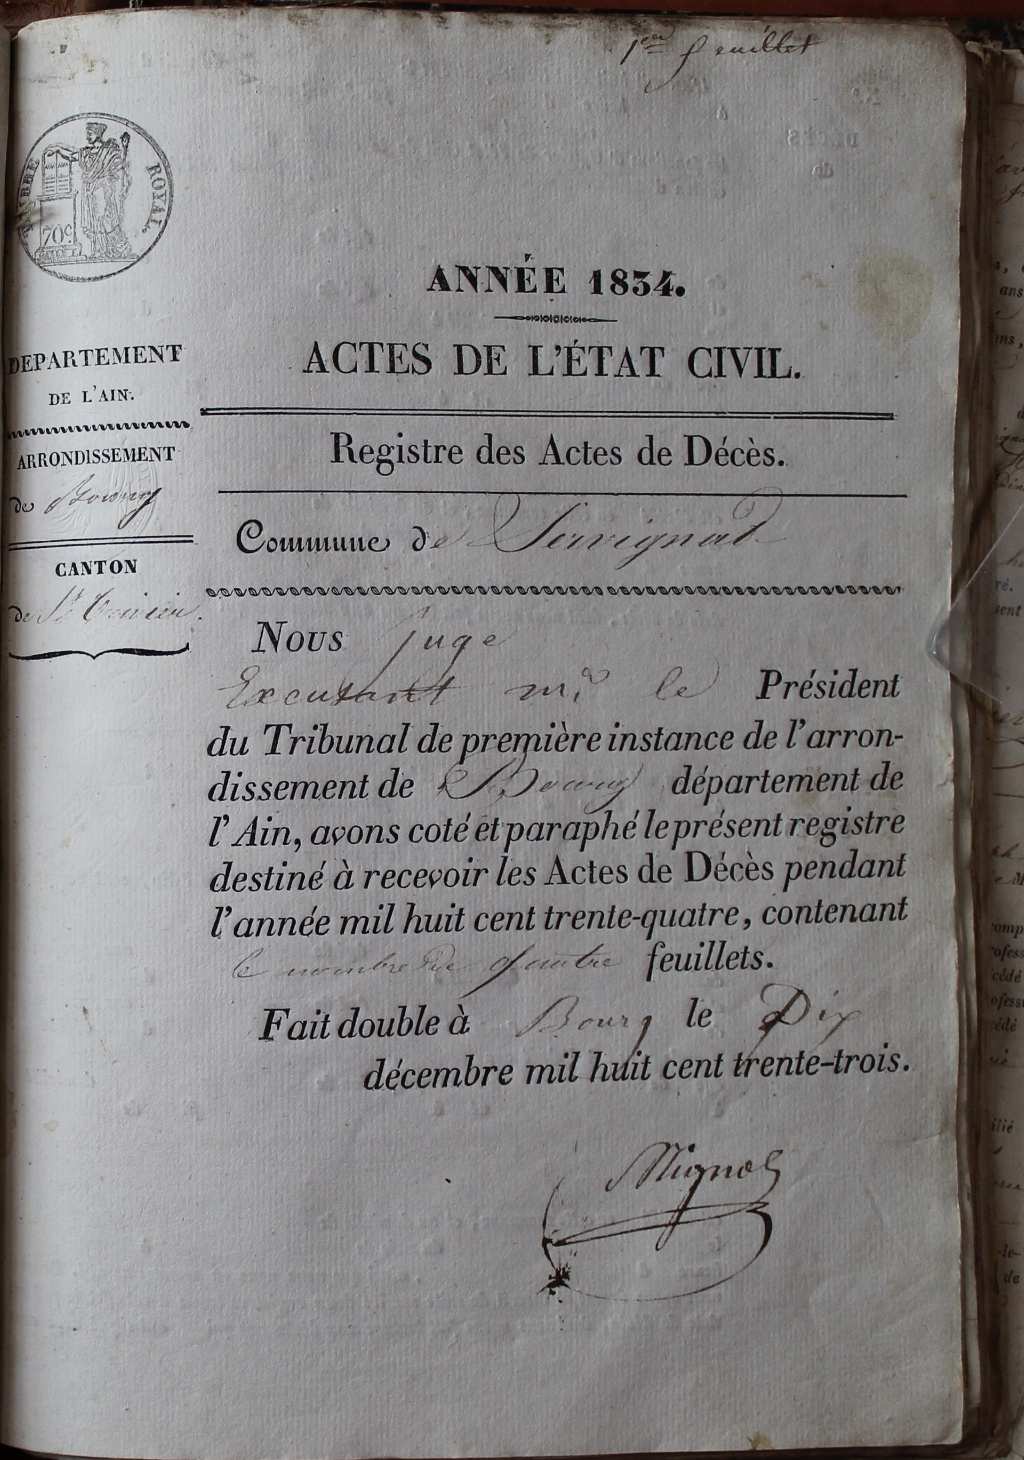 1er feuillet
TIMBRE ROYAL.
70c
ANNÉE 1834.
ACTES DE L'ÉTAT CIVIL.
Registre des Actes de Décès.
Commune de Servignat
DEPARTEMENT
DE L'AIN.
ARRONDISSEMENT
de Bourg
CANTON
de St Trivier.
Nous Juge
Excutant mr le Président
du Tribunal de première instance de l'arron-
dissement de Bourg département de
l'Ain, avons coté et paraphé le présent registre
destiné à recevoir les Actes de Décès pendant
l'année mil huit cent trente-quatre, contenant
le nombre de quatre feuillets.
Fait double à Bourg le Dix
décembre mil huit cent trente-trois.